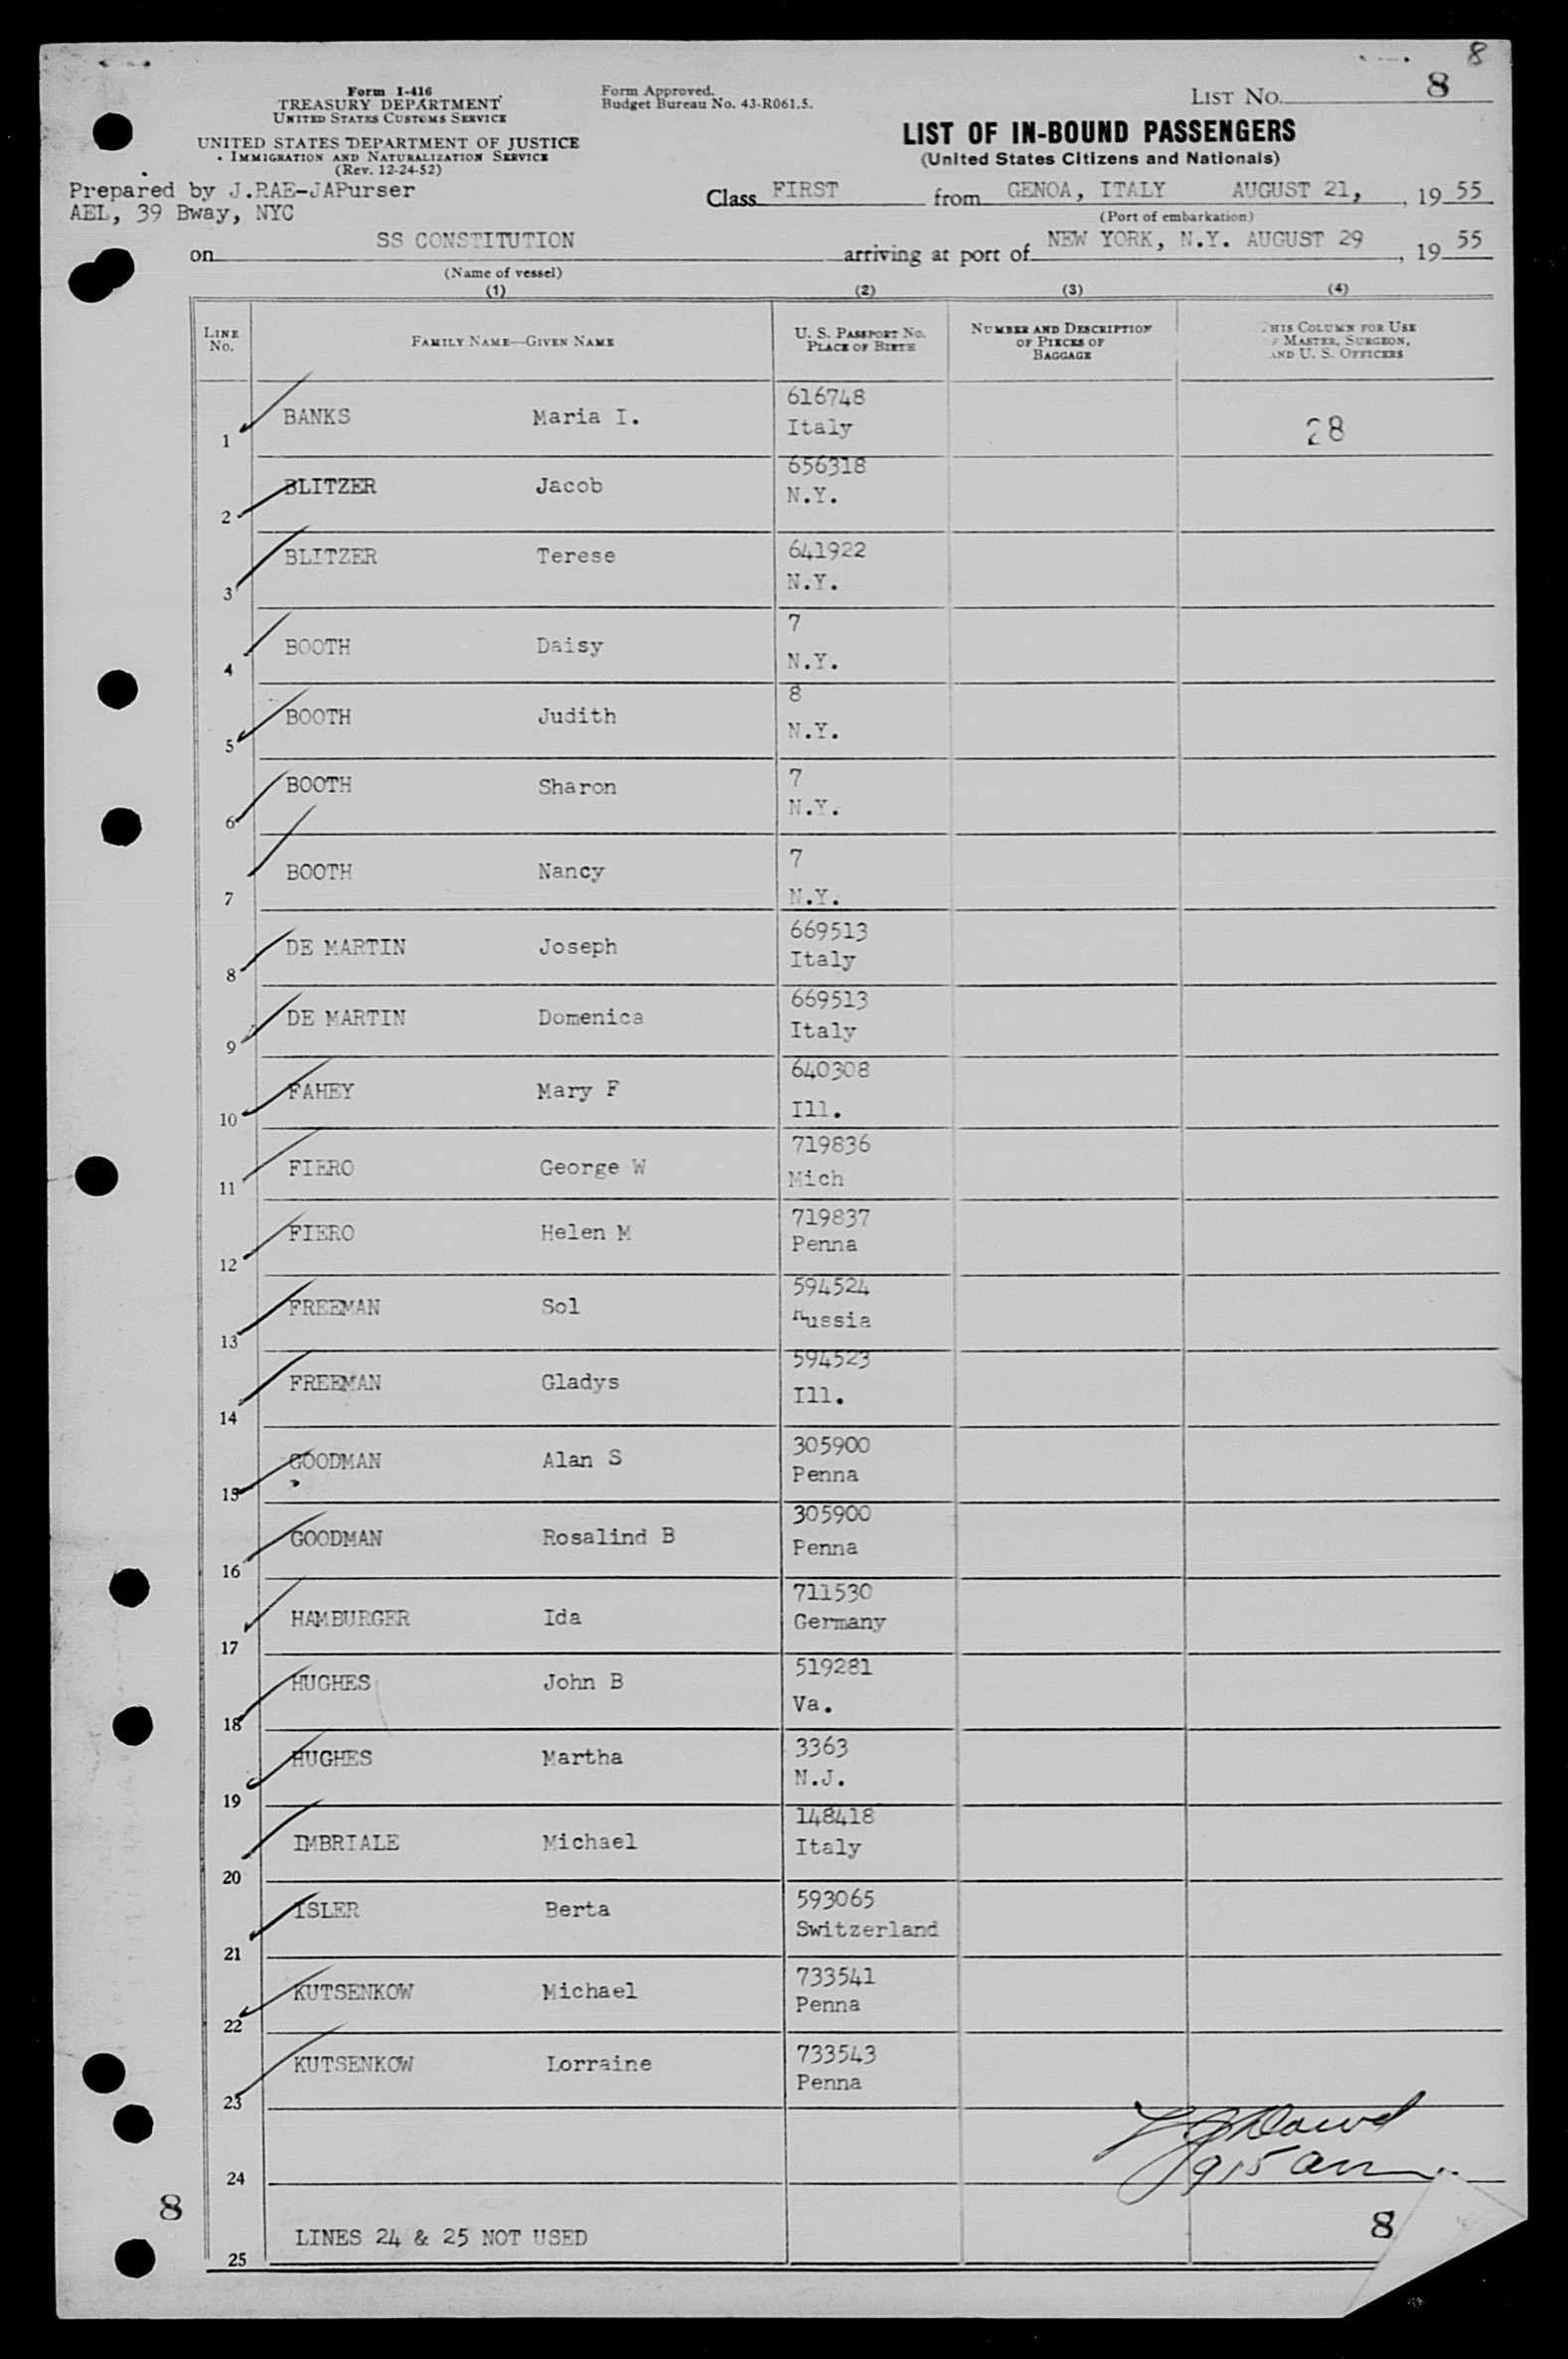 8
Form I-416
TREASURY DEPARTMENT
UNITED STATES CUSTOMS SERVICE
UNITED STATES DEPARTMENT OF JUSTICE
IMMIGRATION AND NATURALIZATION SERVICE
(Rev. 12-24-52)
Form Approved.
Budget Bureau No. 43-R061.5.
LIST NO. 8
LIST OF IN-BOUND PASSENGERS
(United States Citizens and Nationals)
Prepared by J.RAE-JAPurser
AEL, 39 Bway, NYC
Class FIRST from GENOA, ITALY AUGUST 21, , 19 55
(Port of embarkation)
on SS CONSTITUTION arriving at port of NEW YORK, N.Y. AUGUST 29 , 19 55
(Name of vessel)
(1) (2) (3) (4)
LINE NO. FAMILY NAME—GIVEN NAME U. S. PASSPORT NO. PLACE OF BIRTH NUMBER AND DESCRIPTION OF PIECES OF BAGGAGE THIS COLUMN FOR USE OF MASTER, SURGEON, AND U. S. OFFICERS
1 BANKS Maria I. 616748 Italy 28
2 BLITZER Jacob 656318 N.Y.
3 BLITZER Terese 641922 N.Y.
4 BOOTH Daisy 7 N.Y.
5 BOOTH Judith 8 N.Y.
6 BOOTH Sharon 7 N.Y.
7 BOOTH Nancy 7 N.Y.
8 DE MARTIN Joseph 669513 Italy
9 DE MARTIN Domenica 669513 Italy
10 FAHEY Mary F 640308 Ill.
11 FIERO George W 719836 Mich
12 FIERO Helen M 719837 Penna
13 FREEMAN Sol 594524 Russia
14 FREEMAN Gladys 594523 Ill.
15 GOODMAN Alan S 305900 Penna
16 GOODMAN Rosalind B 305900 Penna
17 HAMBURGER Ida 711530 Germany
18 HUGHES John B 519281 Va.
19 HUGHES Martha 3363 N.J.
20 IMBRIALE Michael 148418 Italy
21 ISLER Berta 593065 Switzerland
22 KUTSENKOW Michael 733541 Penna
23 KUTSENKOW Lorraine 733543 Penna
24
915 am
8
8
25 LINES 24 & 25 NOT USED